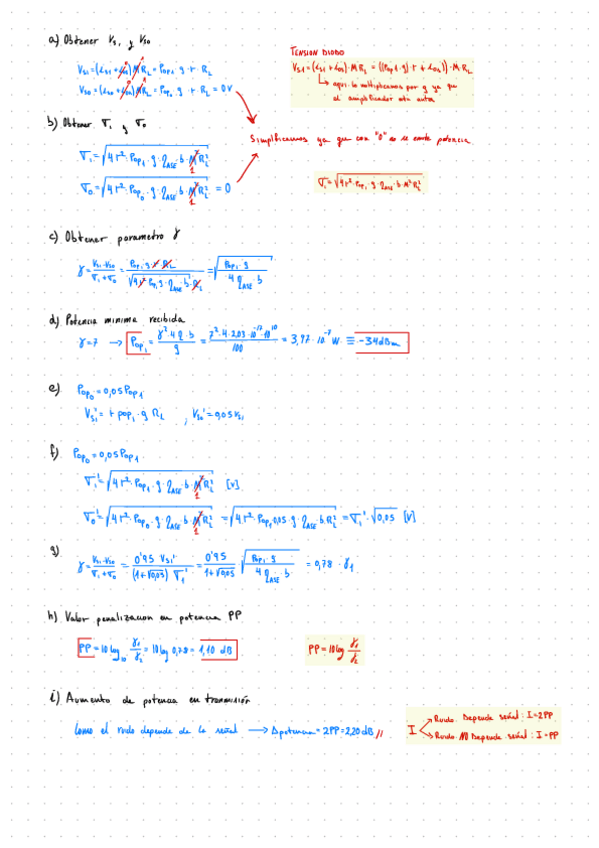 a) Obtener Vs1 y Vs0
TENSION DIODO
Vs1 = (is1 + io1) · M RL = Pop1 · g · r · RL
Vs0 = (is0 + io0) M RL = Pop0 · g · r · RL = 0V
Vs1 = (is1 + io1) · M RL = ((Pop1 · g) · r + io1)) · M · RL
↳ aqui lo multiplicamos por g ya que
el amplificador
b) Obtener σ1 y σ0
Simplificamos ya que con "0" no se emite potencia
σ1 = √(4 r² · Pop1 · g · ηASE · b · M² RL²)
1
σ0 = √(4 r² · Pop0 · g · ηASE · b · M² RL²) = 0
1
σ1 = √(4 r² · Pop1 · g · ηASE · b · M² RL²)
c) Obtener parametro γ
γ = (Vs1 - Vs0)/(σ1 + σ0) = (Pop1 · g · r · RL)/√(4 r² Pop1 g · ηASE · b · RL²) = √((Pop1 · g)/(4 ηASE · b))
d) Potencia minima recibida
γ = 7 → Pop1 = (γ² · 4 η · b)/g = (7² · 4 · 2,03 · 10⁻¹⁷ · 10¹⁰)/100 = 3,97 · 10⁻⁷ W ≡ -34 dBm
e) Pop0 = 0,05 Pop1
Vs1' = r pop1 · g RL , Vs0' = 0,05 Vs1
f) Pop0 = 0,05 Pop1
σ1' = √(4 r² · Pop1 · g · ηASE · b · M² RL²) [V]
1
σ0' = √(4 r² · Pop0 · g · ηASE · b · M² RL²) = √(4 r² · Pop1 0,05 · g · ηASE · b RL²) = σ1' · √0,05 [V]
1
g) γ = (Vs1 - Vs0)/(σ1 + σ0) = (0'95 Vs1')/((1 + √0,05) σ1') = 0'95/(1 + √0,05) √((Pop1 · g)/(4 ηASE · b)) = 0,78 · γ1
h) Valor penalizacion en potencia PP
PP = 10 log10 γ1/γ2 = 10 log 0,78 = 1,10 dB
PP = 10 log γ1/γ2
i) Aumento de potencia en transmisión
Como el ruido depende de la señal → Δpotencia = 2PP = 2,20 dB //
I
Ruido Depende señal : I = 2PP
Ruido NO Depende señal : I = PP